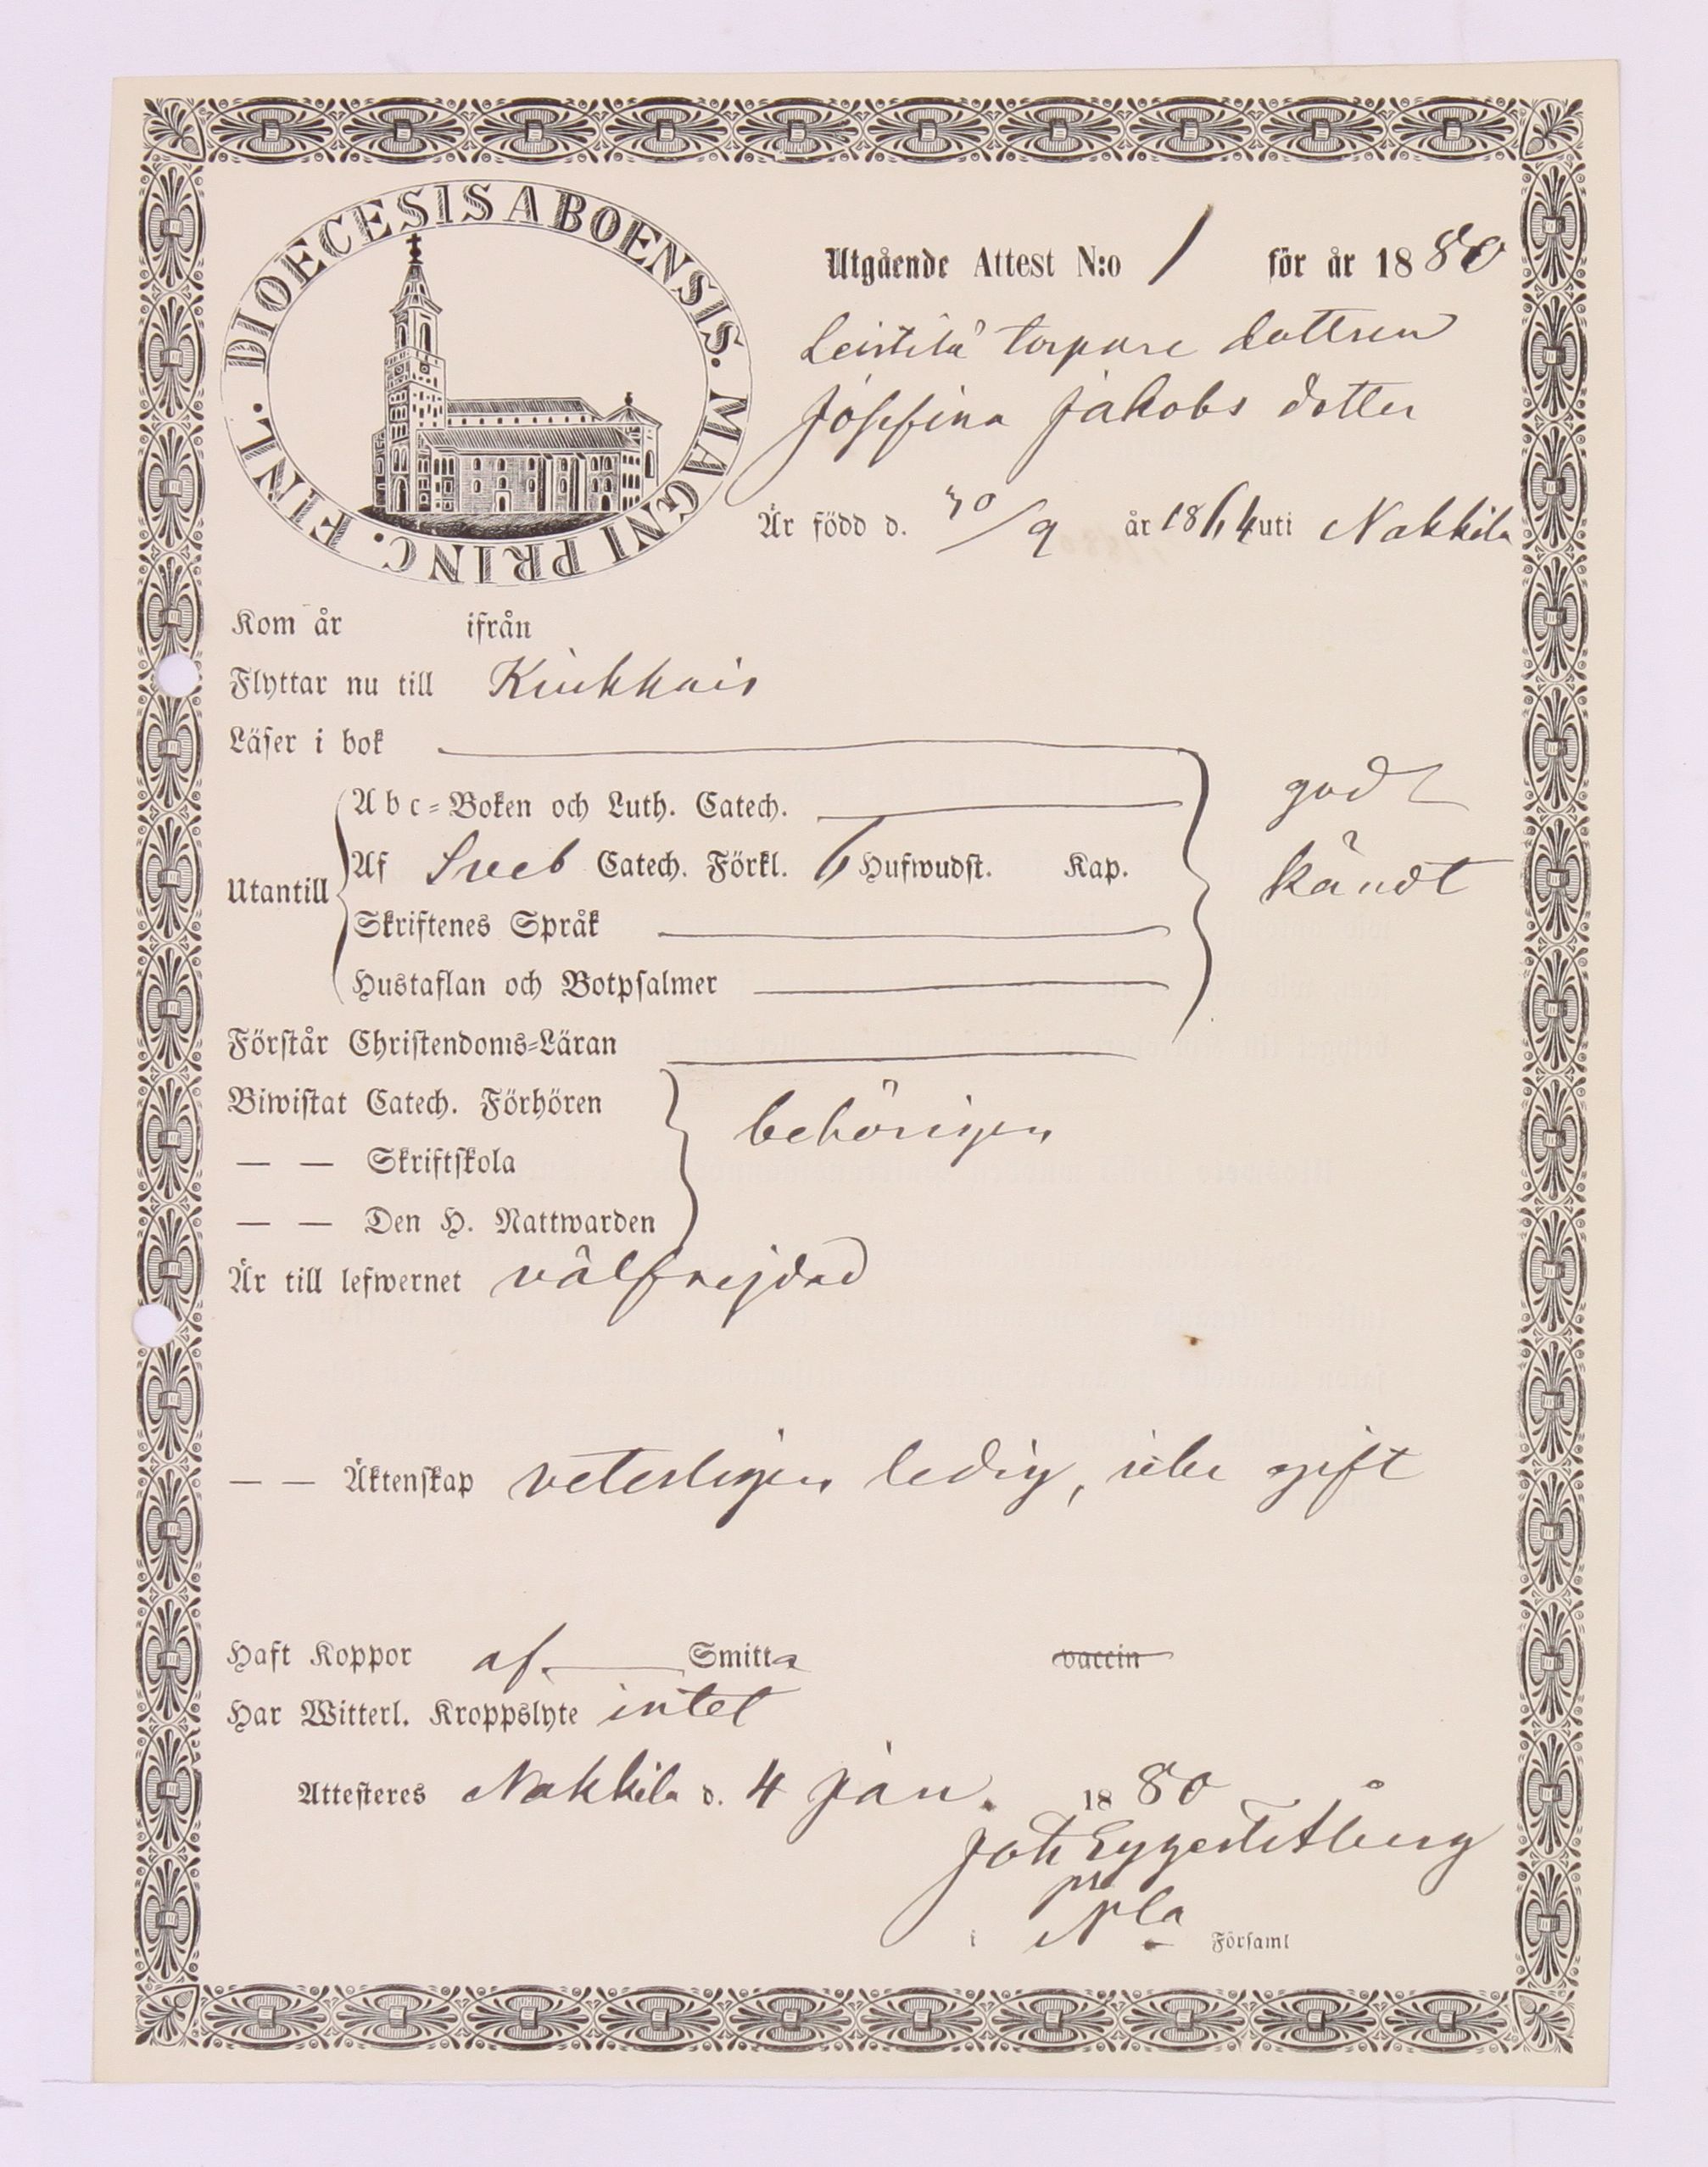 DIOECESIS ABOENSIS. MAGNI PRINC. FINL.
Utgående Attest N:o 1 för år 1880
Leistilä torpare dottren
Josefina Jakobs dotter
Är född d. 30/9 år 1864 uti Nakkila
Kom år ifrån
Flyttar nu till
Läser i bok
Abc-Boken och Luth. Catech.
god
Utantill
Af Sveb Catech. Förkl. 6 Hufwudst. Kap.
kändt
Skriftenes Språk
Hustaflan och Botpsalmer
Förstår Christendoms-Läran
Biwistat Catech. Förhören
behörigen
— — Skriftskola
— — Den H. Nattwarden
Är till lefwernet välfrejdad
— — Äktenskap veterligen ledig, icke gift
Haft Koppor af Smitta vaccin
Har Witterl. Kroppslyte intet
Attesteres Nakkila d. 4 Jan. 1880
Joh
i Nla Församl